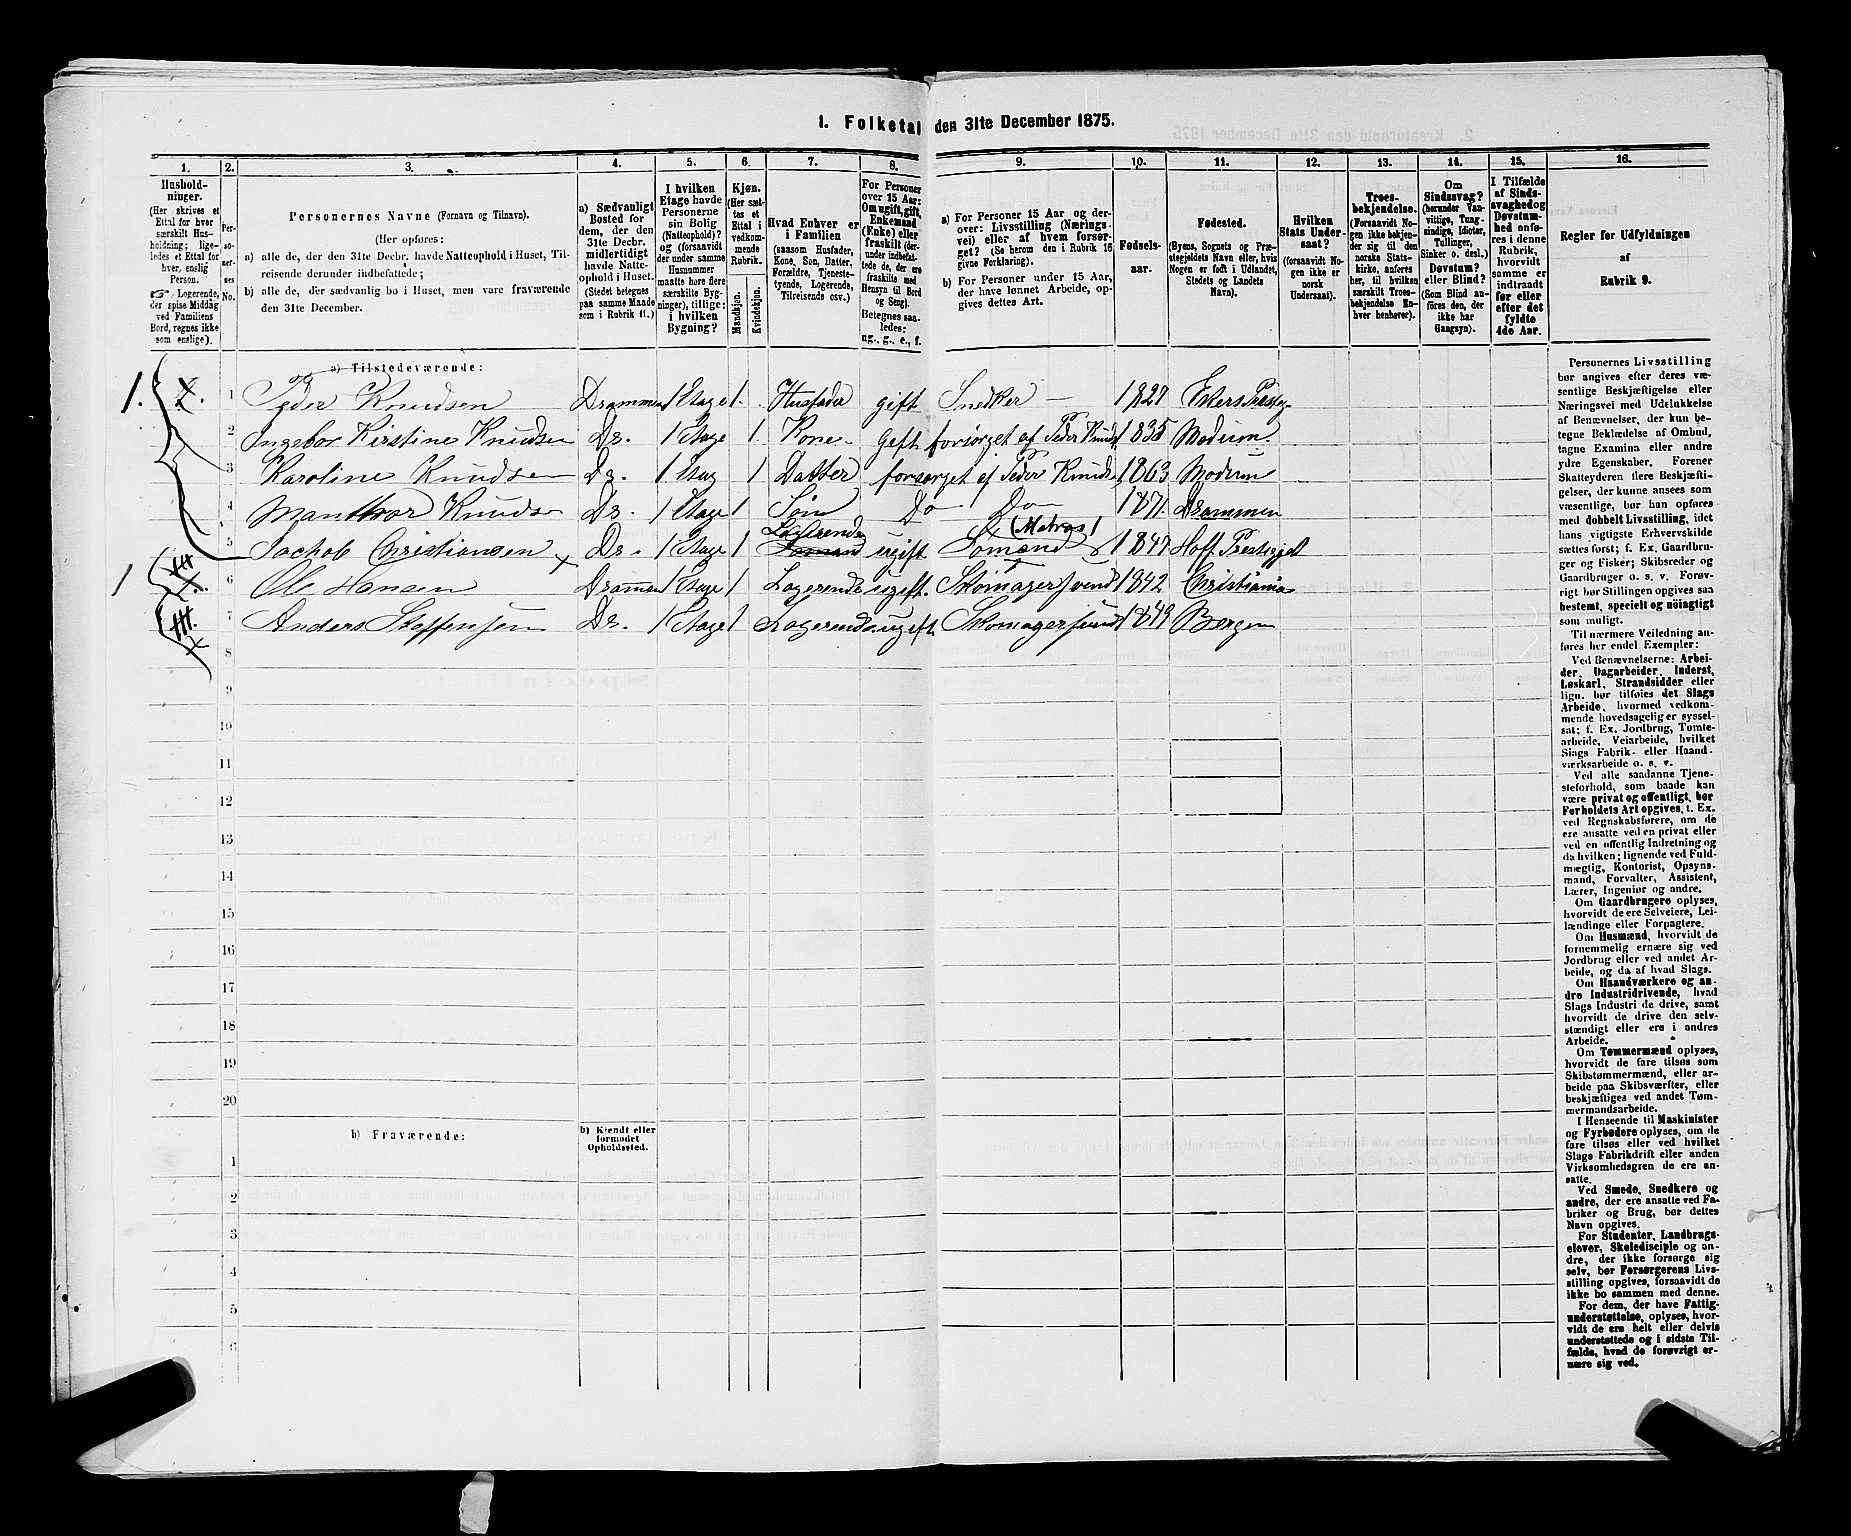 1. Folketal den 31te December 1875.
1. 2. 3. 4. 5. 6. 7. 8. 9. 10. 11. 12. 13. 14. 15. 16.
Hushold-
ninger.
(Her skrives et
Ettal for hver
særskilt Hus-
holdning; lige-
ledes et Ettal for
hver, enslig
Person.
☞ Logerende,
der spise Middag
ved Familiens
Bord, regnes ikke
som enslige).
Per-
so-
ner-
nes
No.
Personernes Navne (Fornavn og Tilnavn).
(Her opføres:
a) alle de, der den 31te Decbr. havde Natteophold i Huset, Til-
reisende derunder indbefattede;
b) alle de, der sædvanlig bo i Huset, men vare fraværende
den 31te December.
a) Sædvanligt
Bosted for
dem, der den
31te Decbr.
midlertidigt
havde Natte-
ophold i Huset.
(Stedet betegnes
paa samme Maade
som i Rubrik 11.)
I hvilken
Etage havde
Personerne
sin Bolig
(Natteophold)?
og (forsaavidt
der under samme
Husnummer
maatte høre flere
særskilte Byg-
ninger), tillige:
i hvilken
Bygning?
Kjøn.
(Her sæt-
tes et
Ettal i
vedkom-
mende
Rubrik.
Mandkjøn.
Kvindekjøn.
Hvad Enhver er
i Familien
(saasom Husfader,
Kone, Søn, Datter,
Forældre, Tjeneste-
tyende, Logerende,
Tilreisende osv.)
For Personer
over 15 Aar:
Om ugift, gift,
Enkemand
(Enke) eller
fraskilt (der-
under indbefat-
tede de, der ere
fraskilte med
Hensyn til Bord
og Seng).
Betegnes saa-
ledes:
ug., g., e., f.
a) For Personer 15 Aar og der-
over: Livsstilling (Nærings-
vei) eller af hvem forsør-
get? (Se herom den i Rubrik 16
givne Forklaring).
b) For Personer under 15 Aar,
der have lønnet Arbeide, op-
gives dettes Art.
Fødsels-
aar.
Fødested.
(Byens, Sognets og Præ-
stegjeldets Navn eller, hvis
Nogen er født i Udlandet,
Stedets og Landets
Navn).
Hvilken
Stats Under-
saat?
(forsaavidt No-
gen ikke er
norsk
Undersaat).
Troes-
bekjendelse.
(Forsaavidt No-
gen ikke bekjen-
der sig til den
norske Stats-
kirke, anføres
her, til hvilken
særskilt Troes-
bekjendelse En-
hver henhører).
Om
Sindssvag?
(herunder Van-
vittige, Tung-
sindige, Idioter,
Tullinger,
Sinker o. desl.)
Døvstum?
eller Blind?
(Som Blind an-
føres den, der
ikke har
Gangsyn).
I Tilfælde
af Sinds-
svaghed og
Døvstum-
hed anfø-
res i denne
Rubrik,
hvorvidt
samme er
indtraadt
før eller
efter det
fyldte
4de Aar.
Regler for Udfyldningen
af
Rubrik 9.
a) Tilstedeværende:
1. 1 Peder Knudsen Drammen 1 Etage 1. Husfader gift Snedker — 1827 Ekers Præsteg
2 Ingebor Kirstine Knudsen Do. 1 Etage 1. Kone gift forsørget af Peder Knuds 1835 Modum.
3 Karoline Knudsen Do. 1 Etag 1 Datter forsørget af Peder Knuds 1863 Modum
4 Knuds Do. 1 Etage 1 Søn Do Do 1871. Drammen
Logerende (Matros)
5 Jachob Christiansen x Do. 1 Etage 1 ugift Sømand 1847 Hoff Prestegjel
1 6 Ole Hansen Dramen 1 Etage 1 Logerende ugift. Skomagersvend 1842 Christiania
7 Anders Steffensen Do. 1 Etage 1 Logerende ugift Skomagersvend 1849 Bergen
8
9
10
11
12
13
14
15
16
17
18
19
20
b) Fraværende:
b) Kjendt eller
formodet
Opholdssted.
1
2
3
4
5
6
Personernes Livsstilling
bør angives efter deres væ-
sentlige Beskjæftigelse eller
Næringsvei med Udelukkelse
af Benævnelser, der kun be-
tegne Beklædelse af Ombud,
tagne Examina eller andre
ydre Egenskaber. Forener
Skatteyderen flere Beskjæfti-
gelser, der kunne ansees som
væsentlige, bør han opføres
med dobbelt Livsstilling, idet
hans vigtigste Erhvervskilde
sættes først; f. Ex. Gaardbru-
ger og Fisker; Skibsreder og
Gaardbruger o. s. v. Forøv-
rigt bør Stillingen opgives saa
bestemt, specielt og nøiagtigt
som muligt.
Til nærmere Veiledning an-
føres her endel Exempler:
Ved Benævnelserne: Arbei-
der, Dagarbeider, Inderst,
Løskarl, Strandsidder eller
lign. bør tilføies det Slags
Arbeide, hvormed vedkom-
mende hovedsagelig er syssel-
sat; f. Ex. Jordbrug, Tomte-
arbeide, Veiarbeide, hvilket
Slags Fabrik- eller Haand-
værksarbeide o. s. v.
Ved alle saadanne Tjene-
steforhold, som baade kan
være privat og offentligt, bør
Forholdets Art opgives, t. Ex.
ved Regnskabsførere, om de
ere ansatte ved en privat eller
ved en offentlig Indretning og
da hvilken; lignende ved Fuld-
mægtig, Kontorist, Opsyns-
mand, Forvalter, Assistent,
Lærer, Ingeniør og andre.
Om Gaardbrugere oplyses,
hvorvidt de ere Selveiere, Lei-
lændinge eller Forpagtere.
Om Husmænd, hvorvidt de
fornemmelig ernære sig ved
Jordbrug eller ved andet Ar-
beide, og da af hvad Slags.
Om Haandværkere og an-
dre Industridrivende, hvad
Slags Industri de drive, samt
hvorvidt de drive den selv-
stændigt eller ere i andres
Arbeide.
Om Tømmermænd oplyses,
hvorvidt de fare tilsøs som
Skibstømmermænd, eller ar-
beide paa Skibsværfter, eller
beskjæftiges ved andet Tøm-
mermandsarbeide.
I Henseende til Maskinister
og Fyrbødere oplyses, om de
fare tilsøs eller ved hvilket
Slags Fabrikdrift eller anden
Virksomhedsgren de ere an-
satte.
Ved Smede, Snedkere og
andre, der ere ansatte ved Fa-
briker og Brug, bør dettes
Navn opgives.
For Studenter, Landbrugs-
elever, Skoledisciple og an-
dre, der ikke forsørge sig
selv, bør Forsørgerens Livs-
stilling opgives, forsaavidt de
ikke bo sammen med denne.
For dem, der have Fattig-
understøttelse, oplyses, hvor-
vidt de ere helt eller delvis
understøttede og i sidste Til-
fælde, hvad de forøvrigt er-
nære sig ved.